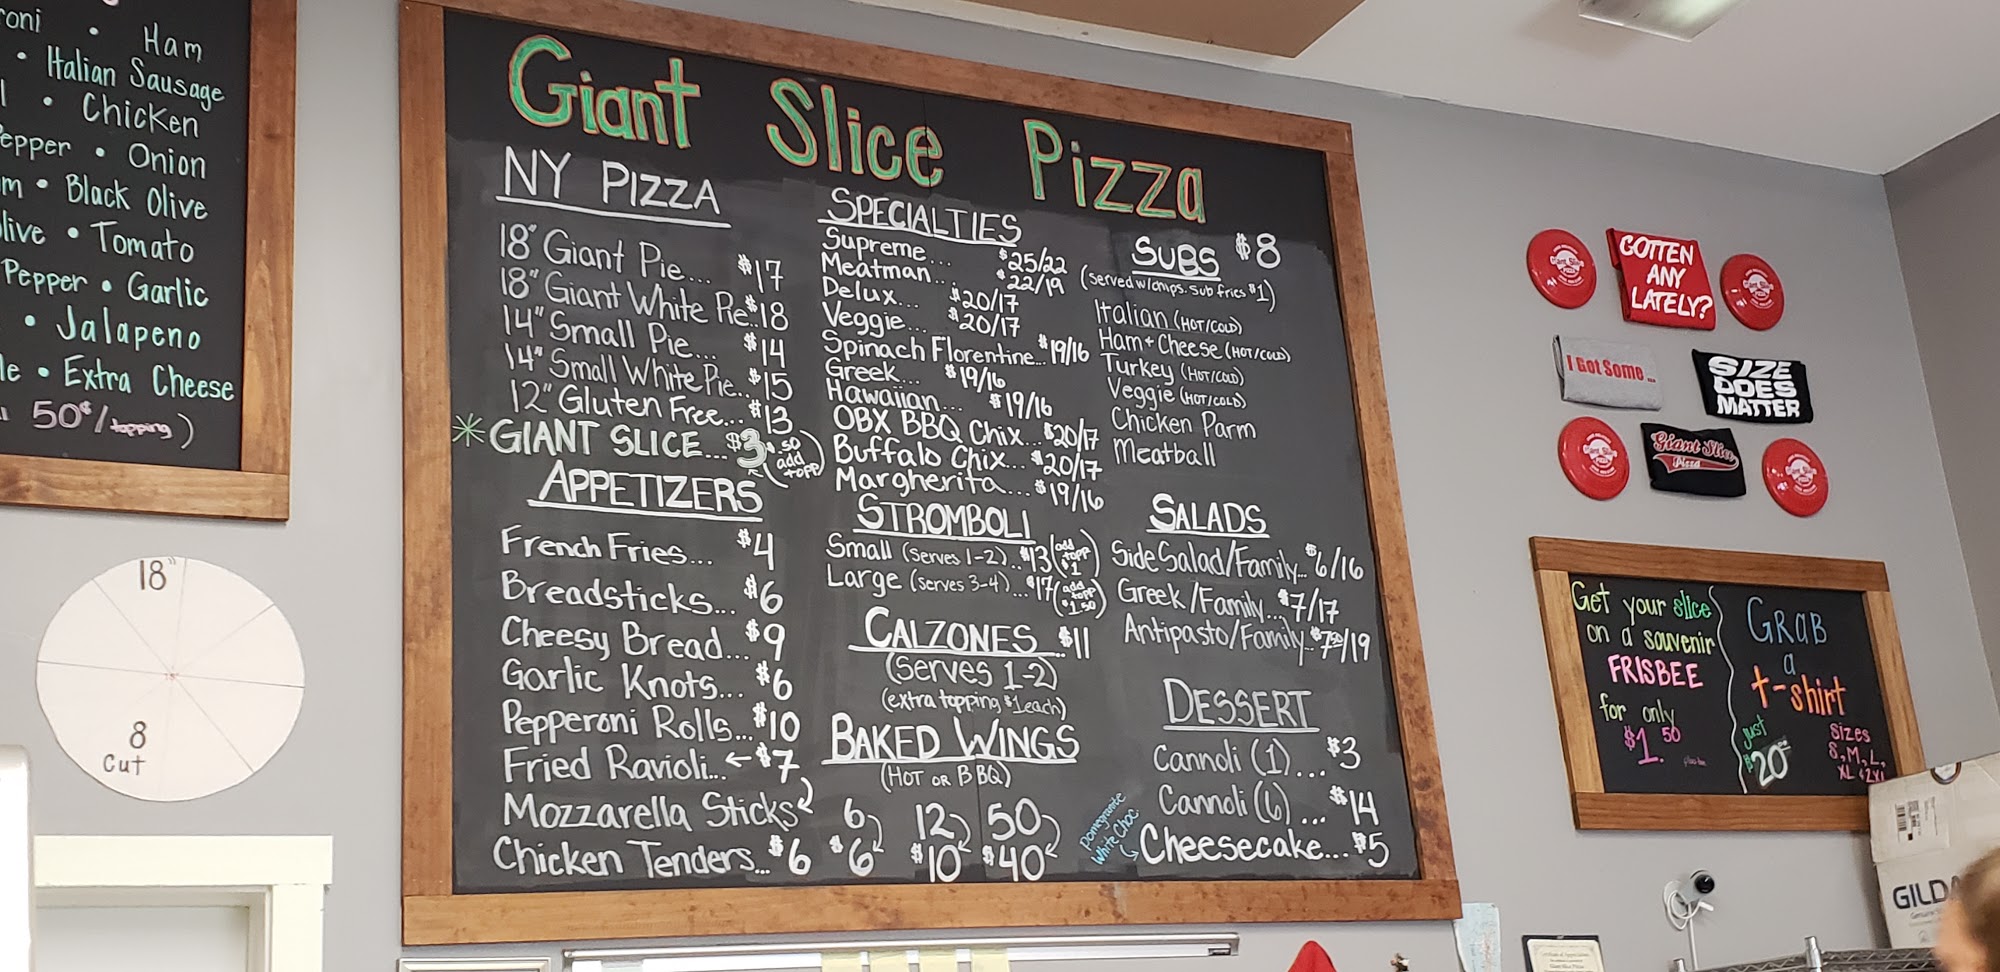 roni • Ham
• Italian Sausage
• Chicken
epper • Onion
m • Black Olive
live • Tomato
Pepper • Garlic
• Jalapeno
le • Extra Cheese
50¢/topping)
18"
8
Cut
Giant Slice Pizza
NY PIZZA
18" Giant Pie... $17
18" Giant White Pie.. $18
14" Small Pie... $14
14" Small White Pie.. $15
12" Gluten Free... $13
*GIANT SLICE... $3 (.50 add topp)
APPETIZERS
French Fries... $4
Breadsticks... $6
Cheesy Bread... $9
Garlic Knots... $6
Pepperoni Rolls... $10
Fried Ravioli... ← $7
Mozzarella Sticks
Chicken Tenders... $6
SPECIALTIES
Supreme... $25/22
Meatman... $22/19
Delux... $20/17
Veggie... $20/17
Spinach Florentine... $19/16
Greek... $19/16
Hawaiian... $19/16
OBX BBQ Chix... $20/17
Buffalo Chix... $20/17
Margherita... $19/16
STROMBOLI
Small (serves 1-2).. $13 (add topp $1)
Large (serves 3-4)... $17 (add topp $1.50)
CALZONES.. $11
(Serves 1-2)
(extra topping $1 each)
BAKED WINGS
(HOT OR BBQ)
6 12 50
$6 $10 $40
SUBS $8
(served w/chips. Sub fries $1)
Italian (HOT/COLD)
Ham + Cheese (HOT/COLD)
Turkey (HOT/COLD)
Veggie (HOT/COLD)
Chicken Parm
Meatball
SALADS
Side Salad/Family... $6/16
Greek/Family... $7/17
Antipasto/Family.. $7.50/19
DESSERT
Cannoli (1)... $3
Cannoli (6)... $14
Pomegranate
White Choc
Cheesecake... $5
GOTTEN
ANY
LATELY?
I Got Some...
SIZE
DOES
MATTER
Giant Slice
Pizza
Get your slice
on a souvenir
FRISBEE
for only
$1.50
GRAB
a
t-shirt
just
$20
Sizes
S, M, L,
XL + 2XL
GILD